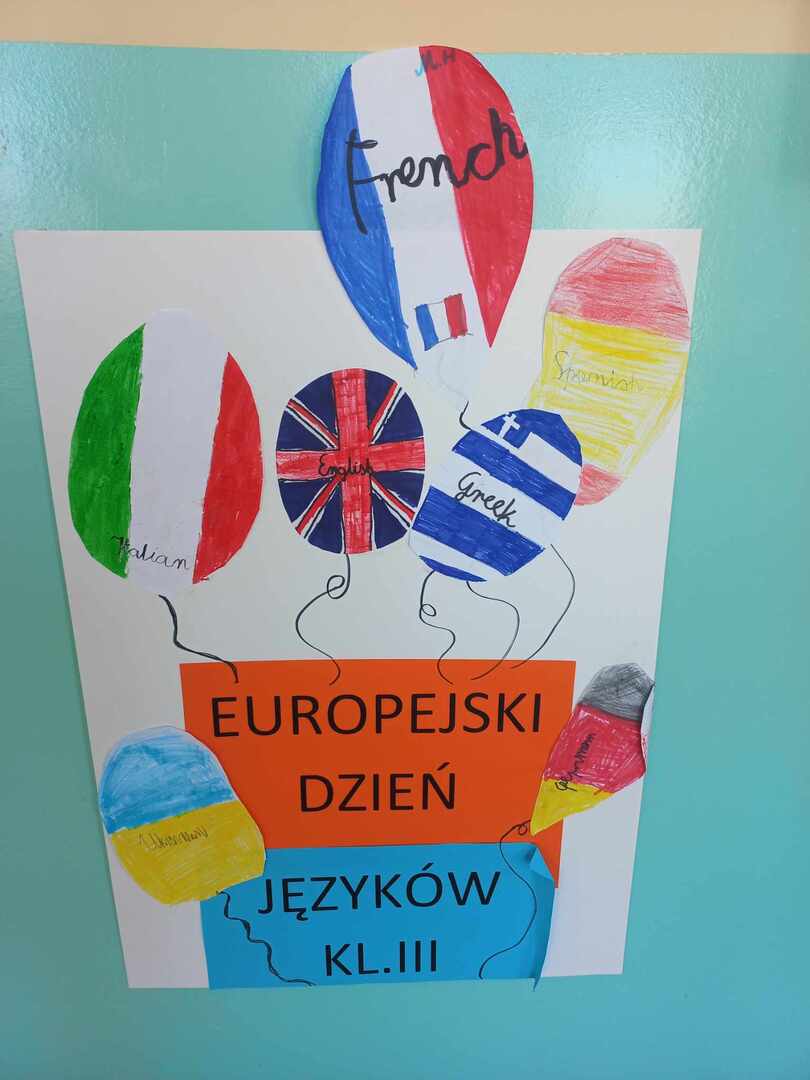 M.H
French
Spanish
English
Greek
Italian
EUROPEJSKI
DZIEŃ
German
JĘZYKÓW
KL.III